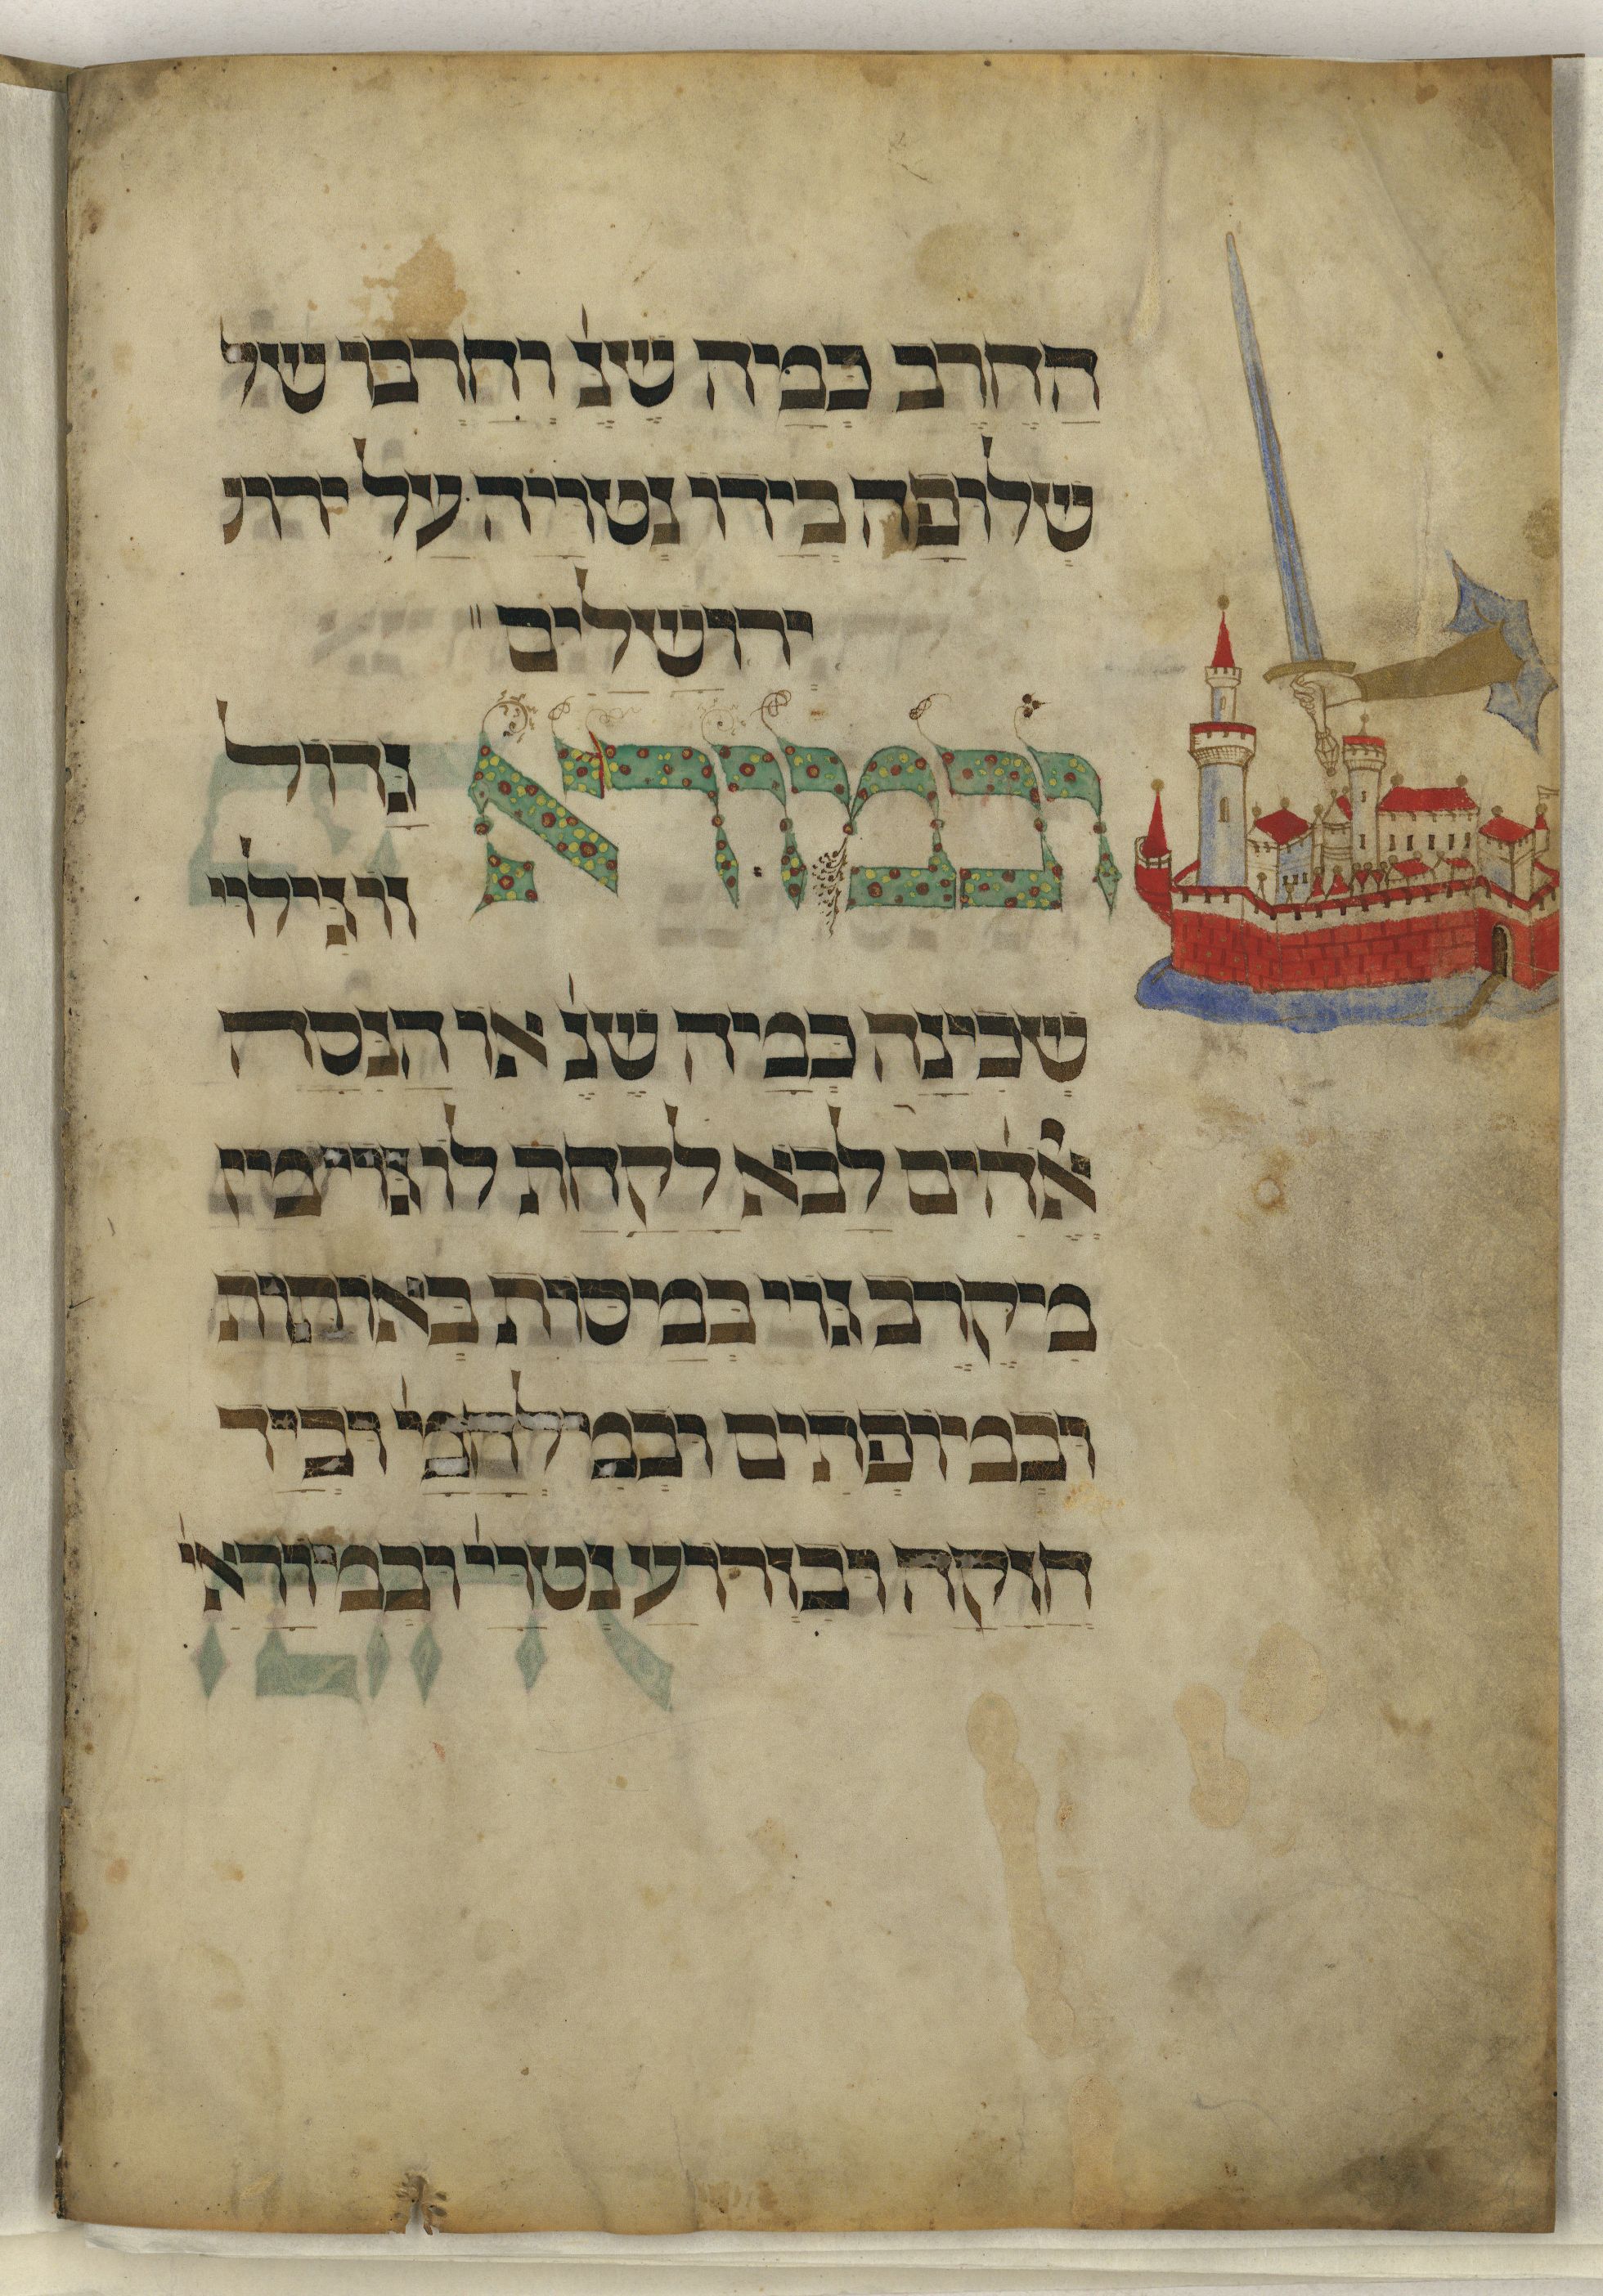 הַחֶרֶב כְּמָיה שֶׁנֶּ׳ וְחַרְבּוֹ שֶׁל
שְׁלוּפָה בְּיָדוֹ נְטוּיָה עַל ירוּ
ירוּשָׁלַיִם
וּבְמוֹרָא גָּדוֹל
זוֹ גִּילּוּי
שְׁכִינָה כְּמָיה שֶׁנֶּ׳ אוֹ הֲנִסָּה
אֱלֹהִים לָבֹא לָקַחַת לוֹ גּוֹי מִיּ
מִיקֶּרֶב גּוֹי בְּמַיסּוֹת בְּאוֹתוֹת
וּבְמוֹפְתִים וּבְמִילְחָמָ׳ וּבְיָד
חֲזָקָה וּבִזְרוֹעַ נְטוּיָ׳ וּבְמוֹרָאִי׳